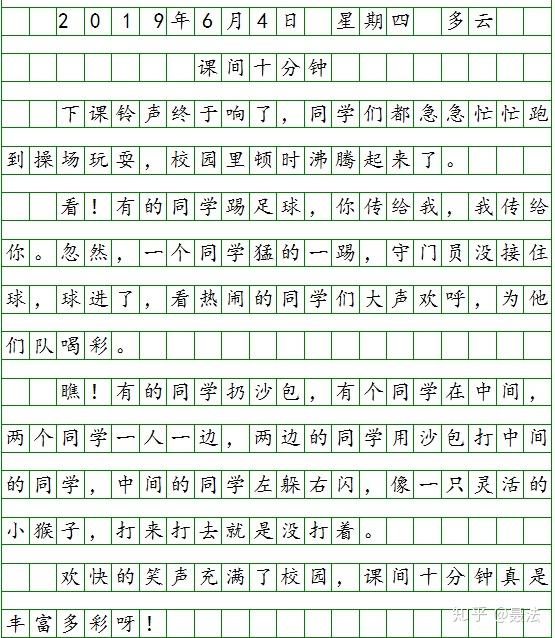 2019年6月4日 星期四 多云
课间十分钟
下课铃声终于响了，同学们都急急忙忙跑
到操场玩耍，校园里顿时沸腾起来了。
看！有的同学踢足球，你传给我，我传给
你。忽然，一个同学猛的一踢，守门员没接住
球，球进了，看热闹的同学们大声欢呼，为他
们队喝彩。
瞧！有的同学扔沙包，有个同学在中间，
两个同学一人一边，两边的同学用沙包打中间
的同学，中间的同学左躲右闪，像一只灵活的
小猴子，打来打去就是没打着。
欢快的笑声充满了校园，课间十分钟真是
丰富多彩呀！
知乎 @聂法